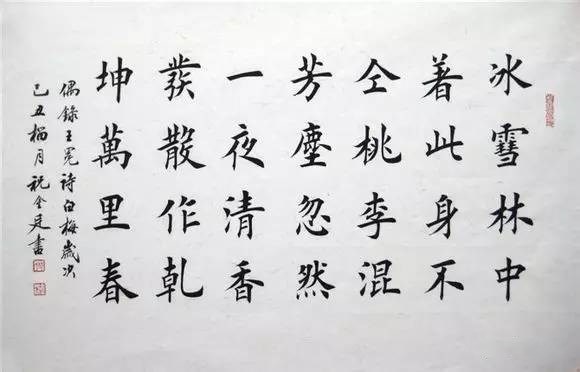 冰雪林中
著此身不
仝桃李混
芳塵忽然
一夜清香
發散作乹
坤萬里春
偶錄王冕詩白梅歲次
己丑榴月祝金書